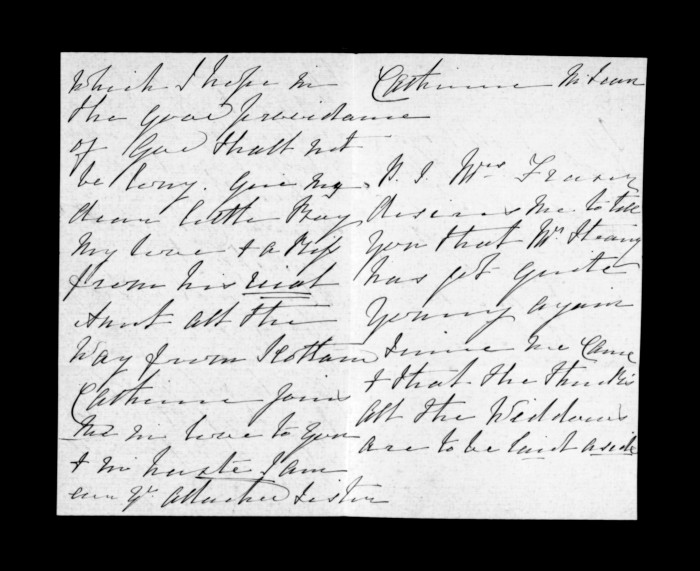 which I hope in
the good providence
of God shall not
be long. Give my
dear little Boy
my love & a Kiss
from his real
Aunt all the
Way from Scotland
Catherine joins
me in love to you
& in haste I am
ever yr attached Sister
Catherine McLean
P.S. Mrs Fraser
desires me to tell
you that Mr Strang
has got quite
young again
since he came
& that she thinks
all the Widdows
are to be laid aside